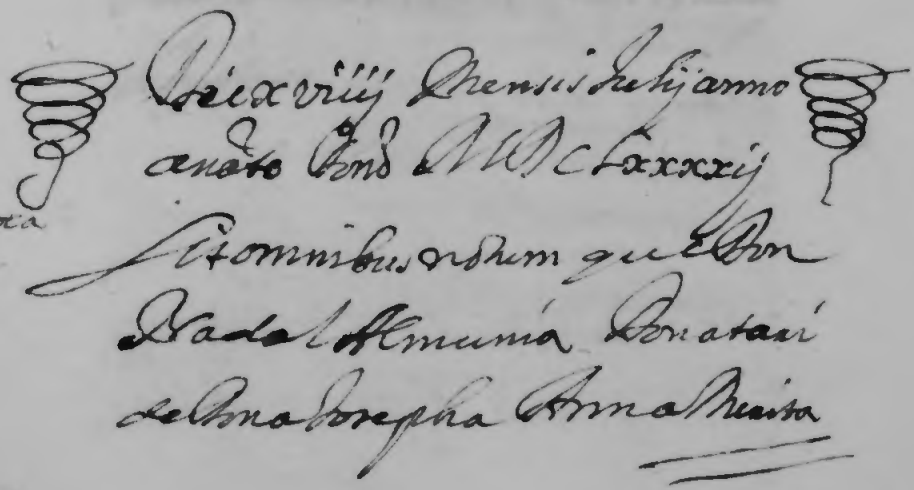 Die xviiij Mensis Julij anno
a nâto Dnô MDCLxxxxij
Sit omnibus nôtum que Don
Nadal Almunia Donatari
de Dona Josepha Anna